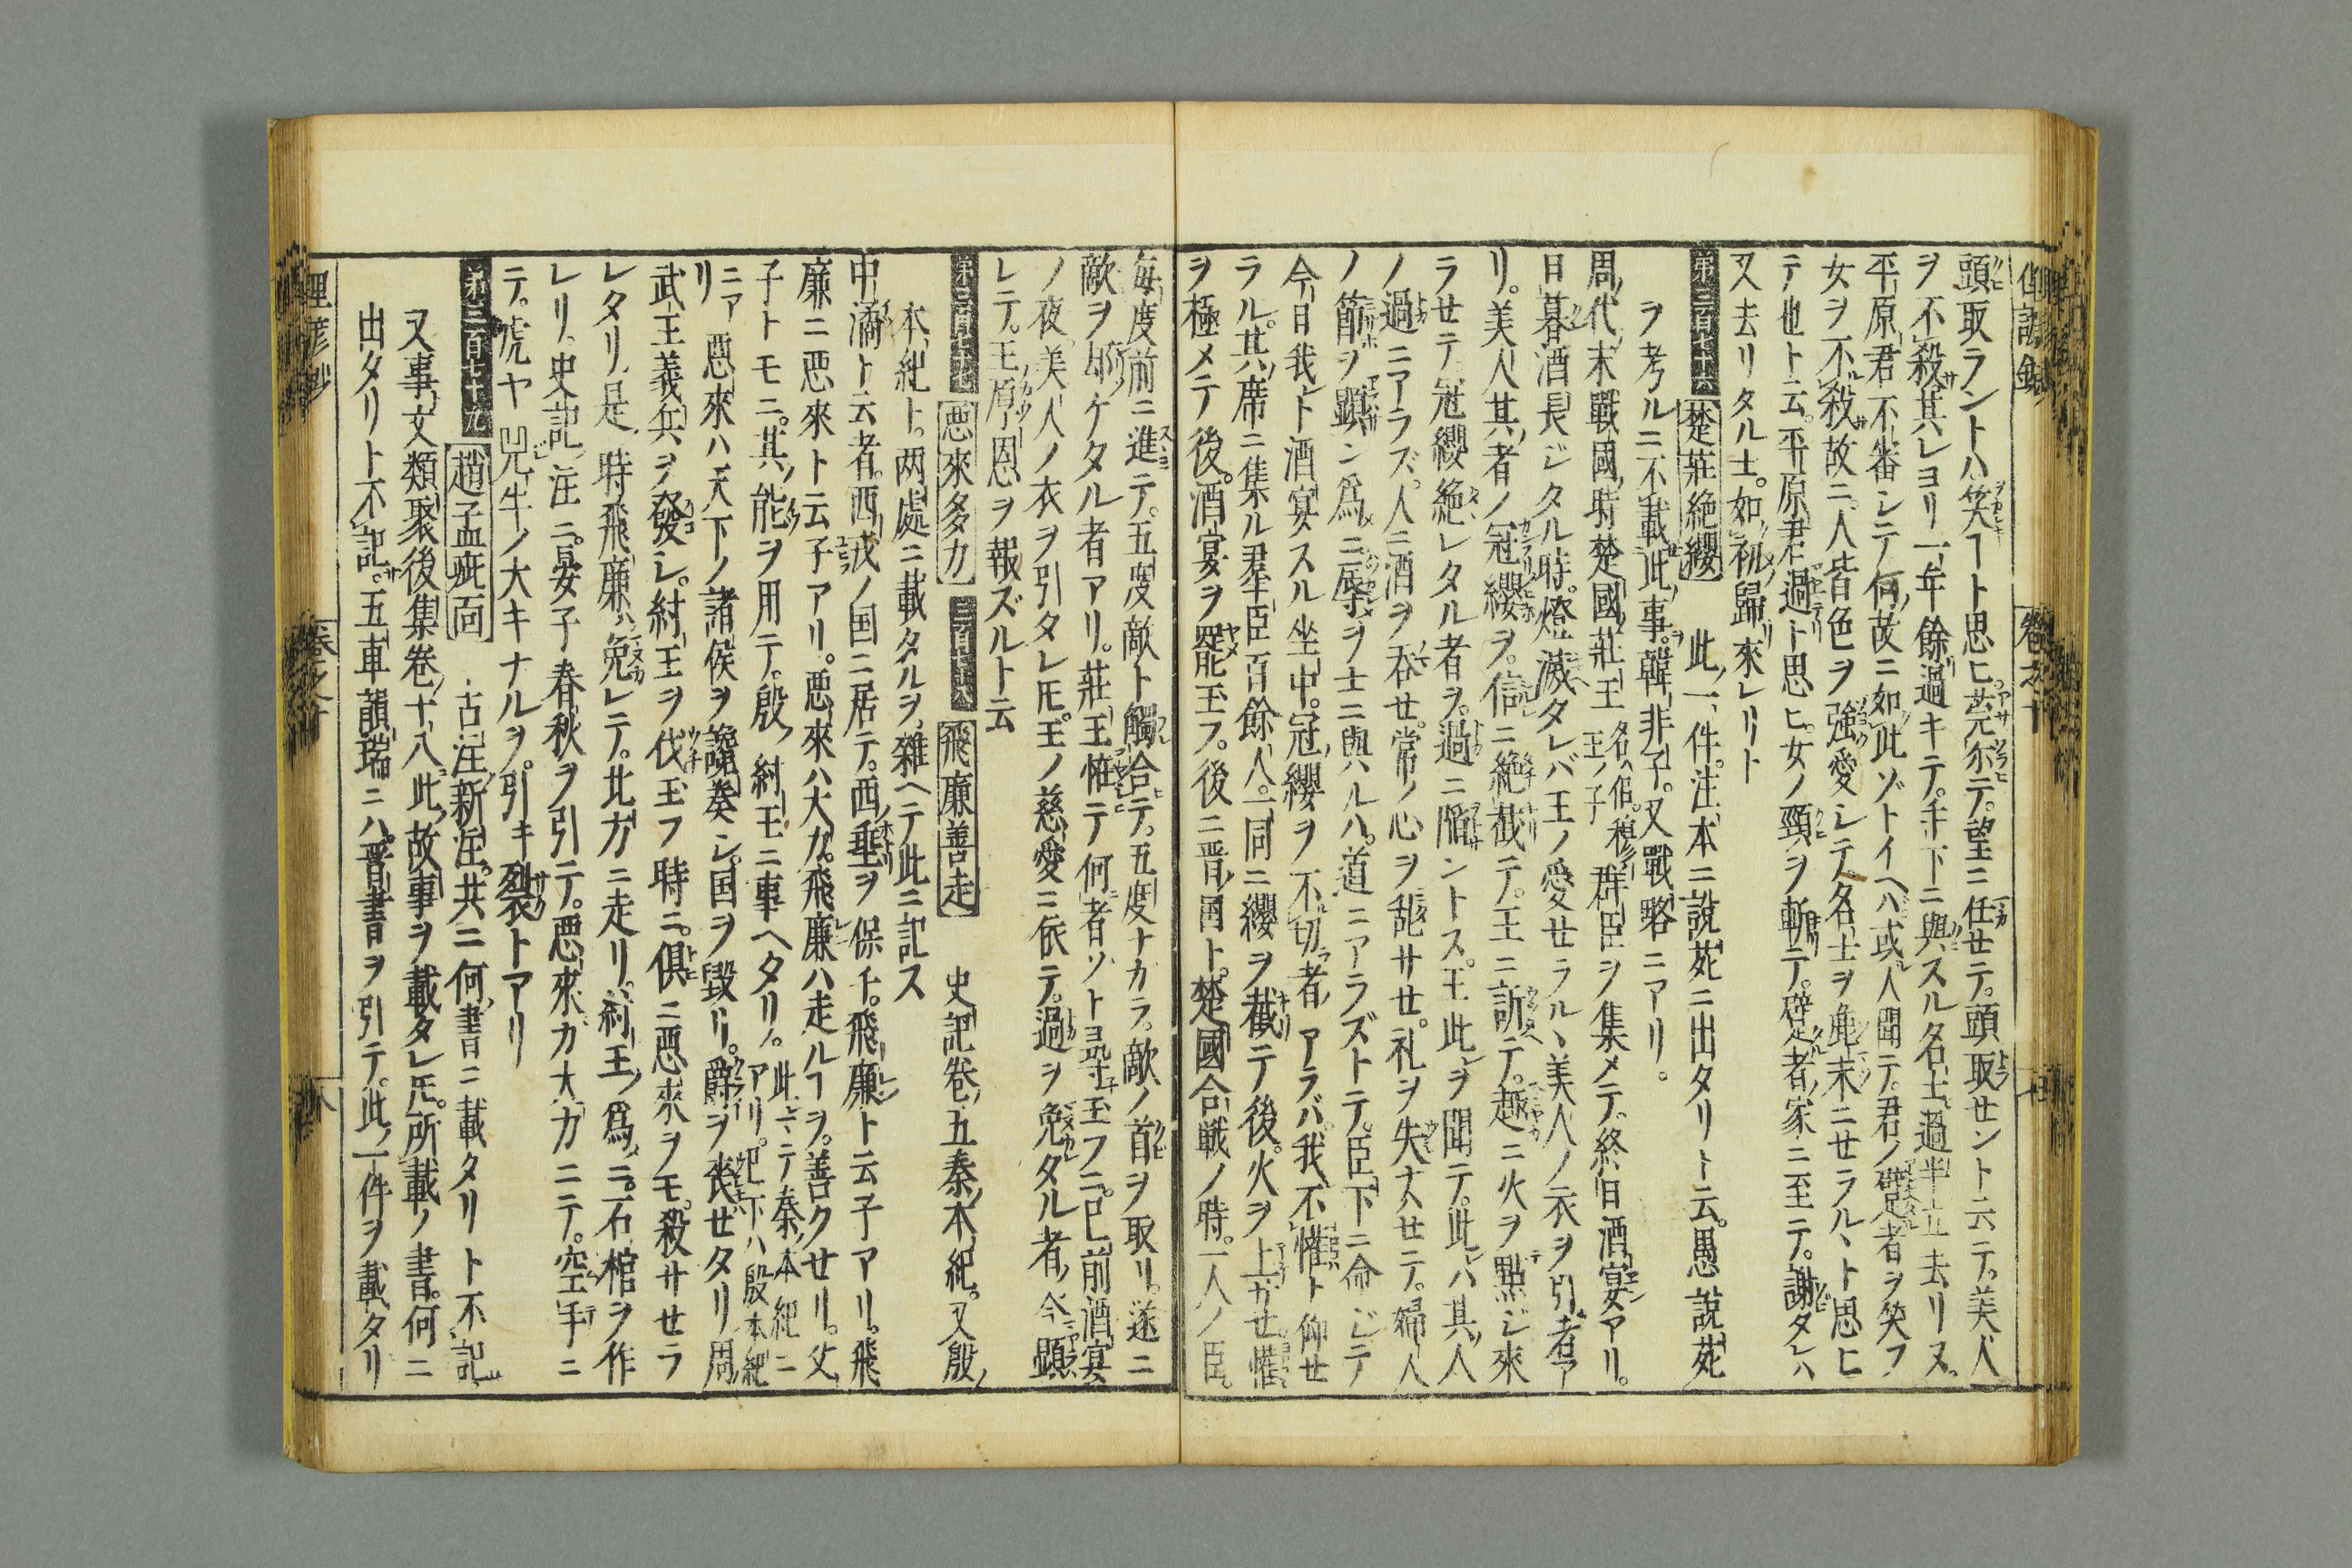 頭取ラントハ笑ヿト思ヒ莞尓テ望ニ任セテ頭取セント云テ美人
ヲ不殺其レヨリ一年餘過キテ千下ニ與スル名士過半立去リヌ
平原君不審シテ何故ニ如此ゾトイヘハ或人聞テ君ノ躄者ヲ笑フ
女ヲ不殺故ニ人皆色ヲ強愛シテ名士ヲ麁末ニセラルヽト思ヒ
テ也ト云平原君過ト思ヒ女ノ頸ヲ斬テ躄者家ニ至テ謝タレハ
又去リタル士如初歸來レリト
第三百七十六 楚莊絶纓 此一件注本ニ說苑ニ出タリト云愚說苑
ヲ考ルニ不載此事韓非子又戰略ニアリ
周代末戰國時楚國莊王名ハ侶穆王ノ子群臣ヲ集メテ終日酒宴アリ
日暮酒長ジタル時燈滅タレバ王ノ愛セラルヽ美人ノ衣ヲ引者ア
リ美人其者ノ冠纓ヲ信ニ絶截テ王ニ訴テ越ニ火ヲ點ジ來
ラセテ冠纓絶レタル者ヲ過ニ陥ントス王此ヲ聞テ此ハ其人
ノ過ニアラズ人ニ酒ヲ呑セ常ノ心ヲ乱サセ礼ヲ失ハセテ婦人
ノ節ヲ顕ン爲ニ辱ヲ士ニ與ハルハ道ニアラズトテ臣下ニ命ジテ
今日我ト酒宴スル坐中冠纓ヲ不切者アラバ我不懽ト仰セ
ラル其席ニ集ル羣臣百餘人一同ニ纓ヲ截テ後火ヲ上ガセ懽
ヲ極メテ後酒宴ヲ罷玉フ後ニ晋国ト楚國合戦ノ時一人ノ臣
毎度前ニ進テ五度敵ト觸合テ五度ナカラ敵ノ首ヲ取リ遂ニ
敵ヲ却ケタル者アリ莊王恠テ何者ソト尋玉フニ已前酒宴
ノ夜美人ノ衣ヲ引タレ𪜈王ノ慈愛ニ依テ過ヲ免タル者今顕
レテ王厚恩ヲ報ズルト云
第三百七十七 悪來多力 三百七十八 飛廉善走 史記巻五秦本紀又殷
本紀ト两處ニ載タルヲ雑ヘテ此ニ記ス
中潏ト云者西戎ノ国ニ居テ西垂ヲ保チ飛廉ト云子アリ飛
廉ニ悪來ト云子アリ悪來ハ大力飛廉ハ走ルヿヲ善クセリ父
子トモニ其能ヲ用テ殷紂王ニ事ヘタリ此ニテ秦本紀ニアリ已下ハ殷本紀
ニアリ悪來ハ天下ノ諸侯ヲ讒奏シ国ヲ毀リ爵ヲ喪セタリ周
武王義兵ヲ發シ紂王ヲ伐玉フ時ニ俱ニ悪來ヲモ殺サセラ
レタリ是時飛廉ハ免レテ北方ニ走リ紂王ノ爲ニ石棺ヲ作
レリ史記注ニ晏子春秋ヲ引テ悪來カ大力ニテ空手ニ
テ虎ヤ兕牛ノ大キナルヲ引キ裂トアリ
第三百七十九 趙孟疵面 古注新注共ニ何書ニ載タリト不記
又事文類聚後集巻十八此故事ヲ載タレ𪜈所載ノ書何ニ
出タリト不記五車韻瑞ニハ晋書ヲ引テ此一件ヲ載タリ
俚諺鈔 巻之十